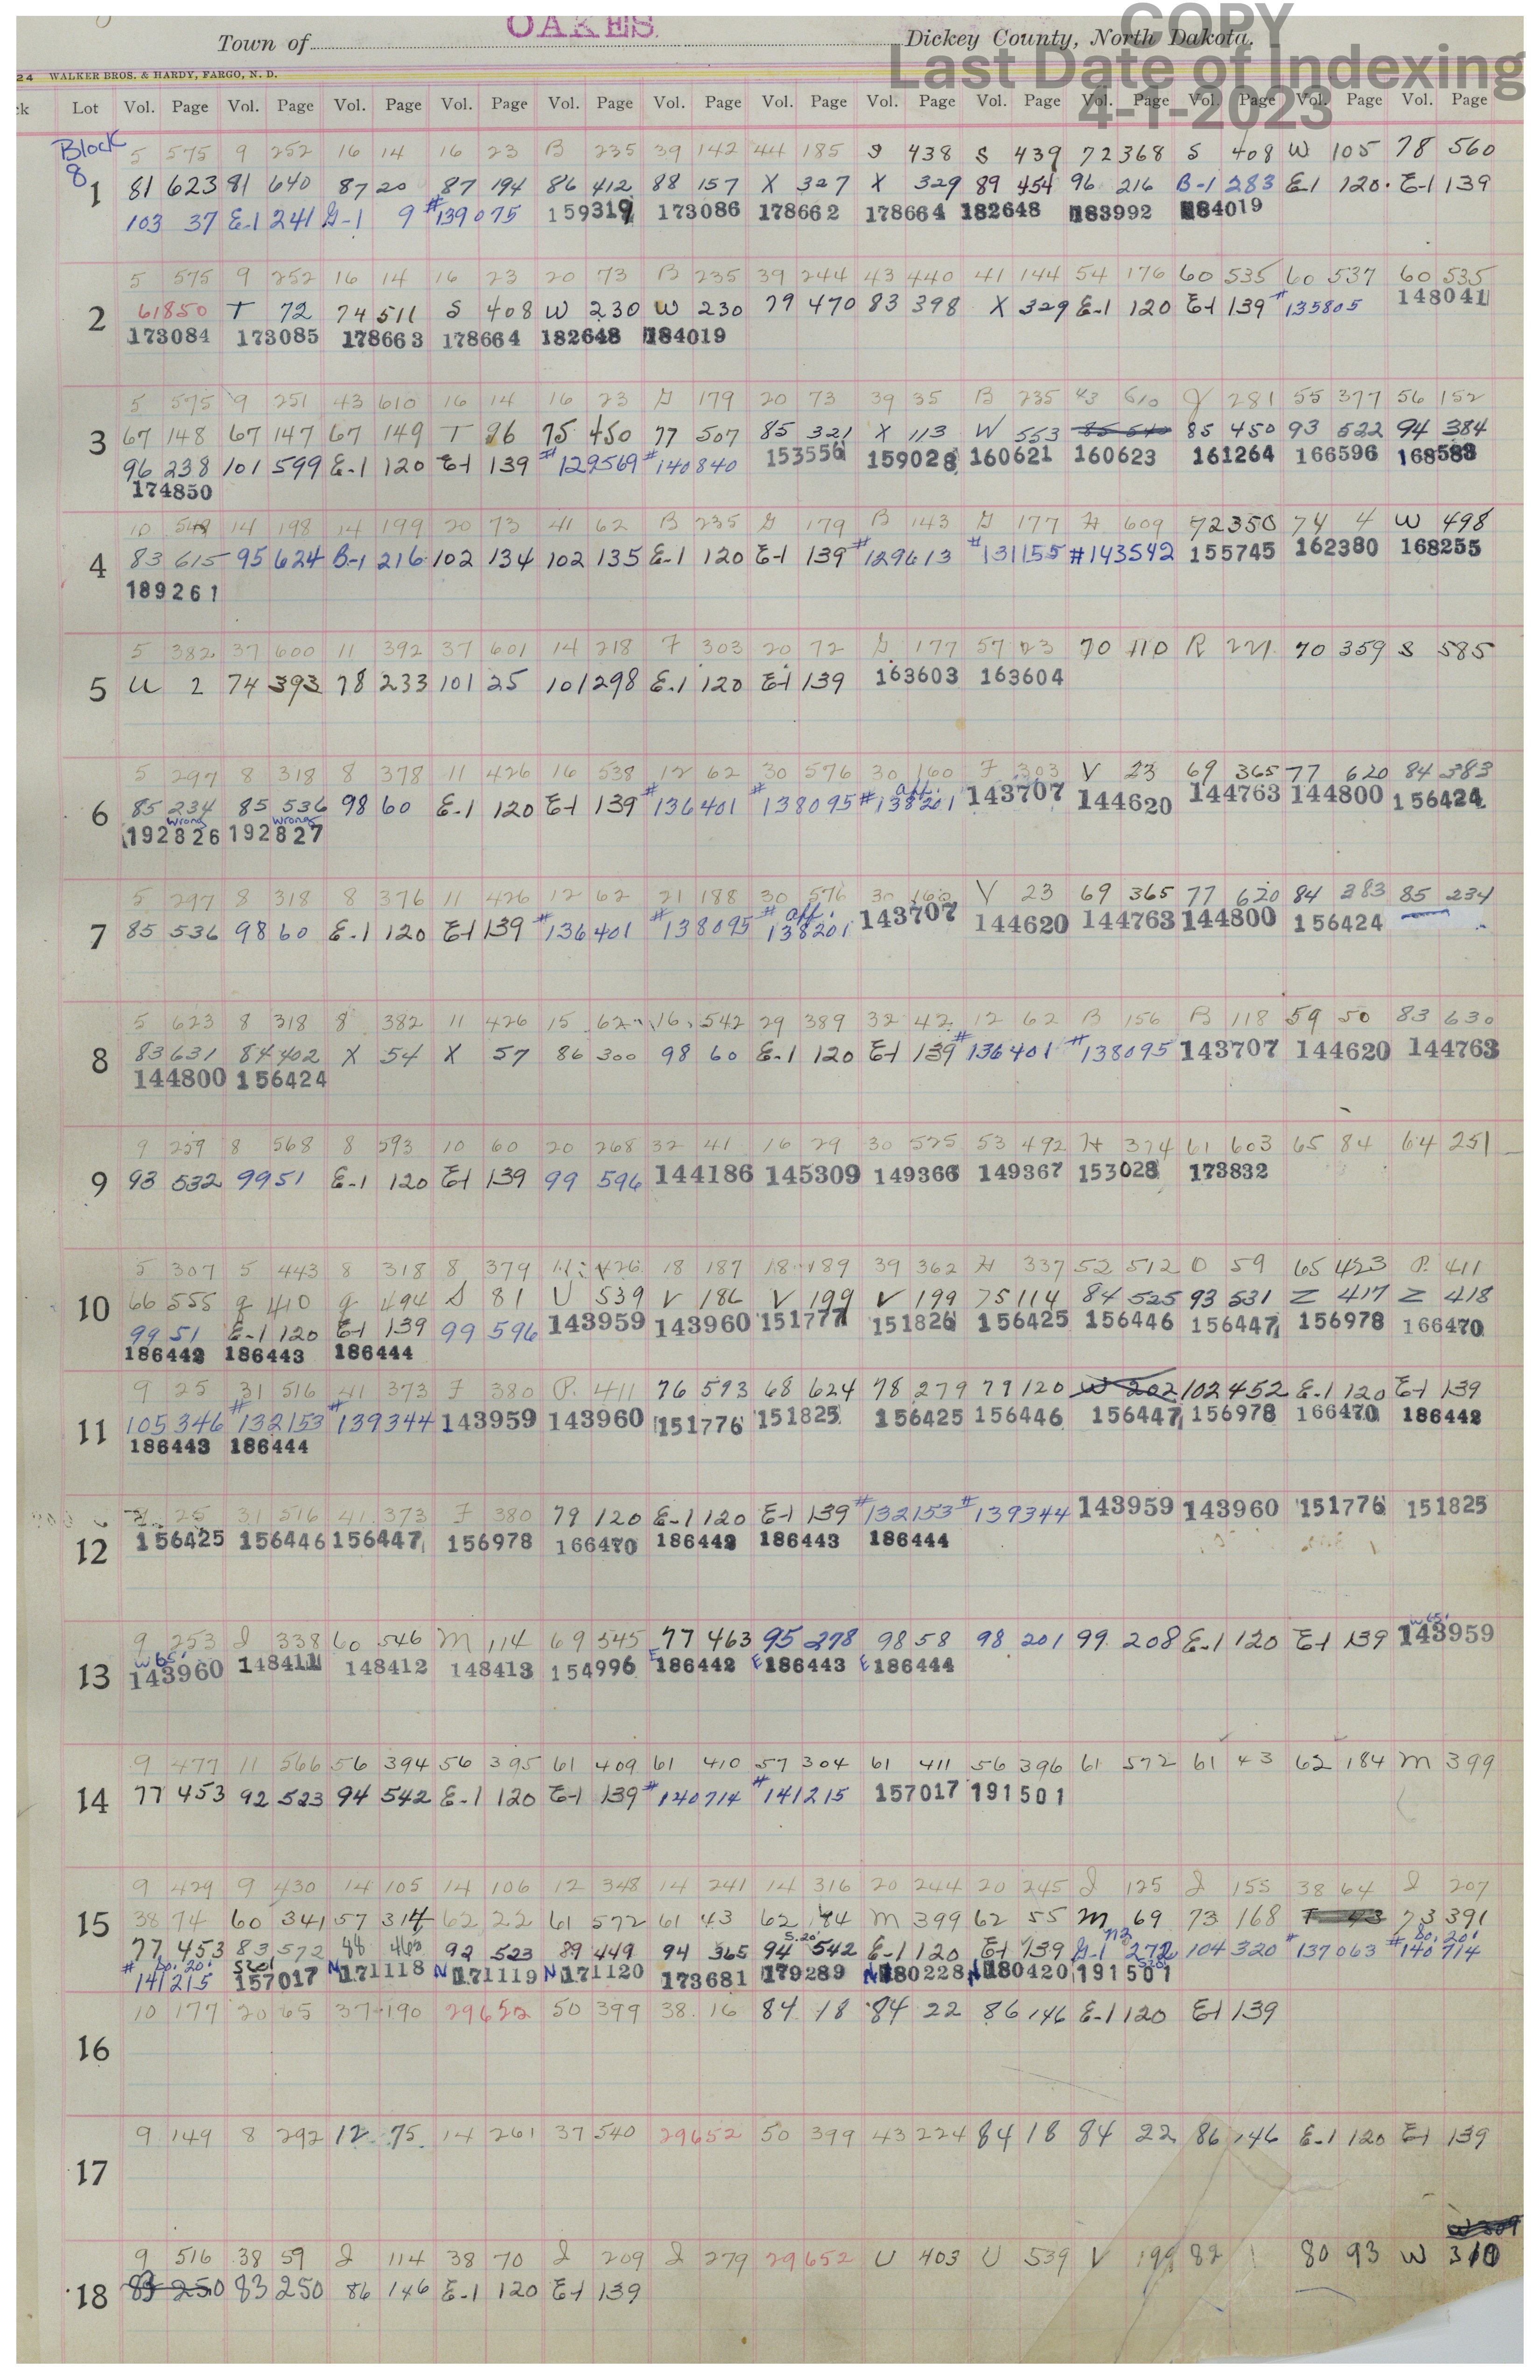 OAKES
Town of Dickey County, North Dakota.
COPY
Last Date of Indexing
4-1-2023
24 WALKER BROS. & HARDY, FARGO, N. D.
ck Lot Vol. Page Vol. Page Vol. Page Vol. Page Vol. Page Vol. Page Vol. Page Vol. Page Vol. Page Vol. Page Vol. Page Vol. Page Vol. Page
Block 8
5 575 9 252 16 14 16 23 B 235 39 142 44 185 S 438 S 439 72 368 S 408 W 105 78 560
1 81 623 81 640 87 20 87 194 86 412 88 157 X 327 X 329 89 454 96 216 B-1 283 E-1 120 E-1 139
103 37 E-1 241 G-1 9 #139075 159319 173086 178662 178664 182648 183992 184019
5 575 9 252 16 14 16 23 20 73 B 235 39 244 43 440 41 144 54 176 60 535 60 537 60 535
2 61850 T 72 74 511 S 408 W 230 W 230 79 470 83 398 X 329 E-1 120 E-1 139 #135805 148041
173084 173085 178663 178664 182648 184019
5 575 9 251 43 610 16 14 16 23 G 179 20 73 39 35 B 235 43 610 J 281 55 377 56 152
3 67 148 67 147 67 149 T 96 75 450 77 507 85 321 X 113 W 553 85 540 85 450 93 522 94 384
96 238 101 599 E-1 120 E-1 139 #129569 #140840 153556 159028 160621 160623 161264 166596 168583
174850
10 549 14 198 14 199 20 73 41 62 B 235 G 179 B 143 G 177 H 609 72 350 74 4 W 498
4 83 615 95 624 B-1 216 102 134 102 135 E-1 120 E-1 139 #129613 #131155 #143542 155745 162380 168255
189261
5 382 37 600 11 392 37 601 14 218 F 303 20 72 G 177 57 23 70 110 R 221 70 359 S 585
5 U 2 74 393 78 233 101 25 101 298 E-1 120 E-1 139 163603 163604
5 297 8 318 8 378 11 426 16 538 12 62 30 576 30 160 F 303 V 23 69 365 77 620 84 383
6 85 234 85 536 98 60 E-1 120 E-1 139 #136401 #138095 #138201 aff. 143707 144620 144763 144800 156424
wrong wrong
192826 192827
5 297 8 318 8 376 11 426 12 62 21 188 30 576 30 160 V 23 69 365 77 620 84 383 85 234
7 85 536 98 60 E-1 120 E-1 139 #136401 #138095 # aff. 138201 143707 144620 144763 144800 156424
5 623 8 318 8 382 11 426 15 62 16 542 29 389 32 42 12 62 B 156 B 118 59 50 83 630
8 83 631 84 402 X 54 X 57 86 300 98 60 E-1 120 E-1 139 #136401 #138095 143707 144620 144763
144800 156424
9 259 8 568 8 593 10 60 20 268 32 41 16 29 30 525 53 492 H 374 61 603 65 84 64 251
9 93 532 99 51 E-1 120 E-1 139 99 596 144186 145309 149366 149367 153028 173832
5 307 5 443 8 318 8 379 11 426 18 187 18 189 39 362 H 337 52 512 O 59 65 423 P. 411
10 66 555 g 410 g 494 S 81 U 539 V 186 V 199 V 199 75 114 84 525 93 531 Z 417 Z 418
99 51 E-1 120 E-1 139 99 596 143959 143960 151777 151826 156425 156446 156447 156978 166470
186442 186443 186444
9 25 31 516 41 373 F 380 P. 411 76 593 68 624 78 279 79 120 W 202 102 452 E-1 120 E-1 139
11 105 346 #132153 #139344 143959 143960 151776 151825 156425 156446 156447 156978 166470 186442
186443 186444
25 31 516 41 373 F 380 79 120 E-1 120 E-1 139 #132153 #139344 143959 143960 151776 151825
12 156425 156446 156447 156978 166470 186442 186443 186444
9 253 I 338 60 546 M 114 69 545 77 463 95 278 98 58 98 201 99 208 E-1 120 E-1 139 W 65' 143959
13 W 65' 143960 148411 148412 148413 154996 E 186442 E 186443 E 186444
9 477 11 566 56 394 56 395 61 409 61 410 57 304 61 411 56 396 61 572 61 43 62 184 M 399
14 77 453 92 523 94 542 E-1 120 E-1 139 #140714 #141215 157017 191501
9 429 9 430 14 105 14 106 12 348 14 241 14 316 20 244 20 245 I 125 I 155 38 64 I 207
15 38 74 60 341 57 314 62 22 61 572 61 43 62 184 M 399 62 55 M 69 73 168 T 43 73 391
77 453 83 572 88 463 92 523 89 449 94 365 94 S.20' 542 E-1 120 E-1 139 G-1 N2 272 104 320 #137063 #140714 So. 20'
# So. 20' 141215 S20' 157017 N 171118 N 171119 N 171120 173681 179289 N 180228 N 180420 191501 S20'
10 177 20 65 37 190 29652 50 399 38 16 84 18 84 22 86 146 E-1 120 E-1 139
16
9 149 8 292 12 75 14 261 37 540 29652 50 399 43 224 84 18 84 22 86 146 E-1 120 E-1 139
17
9 516 38 59 I 114 38 70 I 209 I 279 29652 U 403 U 539 V 199 82 1 80 93 W 310
18 83 250 83 250 86 146 E-1 120 E-1 139